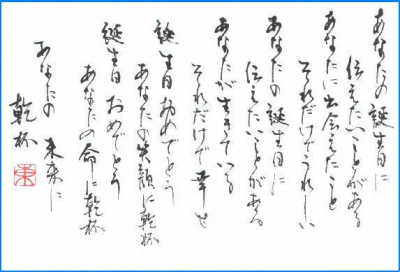 あなたの誕生日に
伝えたいことがある
あなたに出会えたこと
それだけでうれしい
あなたの誕生日に
伝えたいことがある
あなたが生きている
それだけで幸せ
誕生日おめでとう
あなたの笑顔に乾杯
誕生日おめでとう
あなたの命に乾杯
あなたの未来に
乾杯